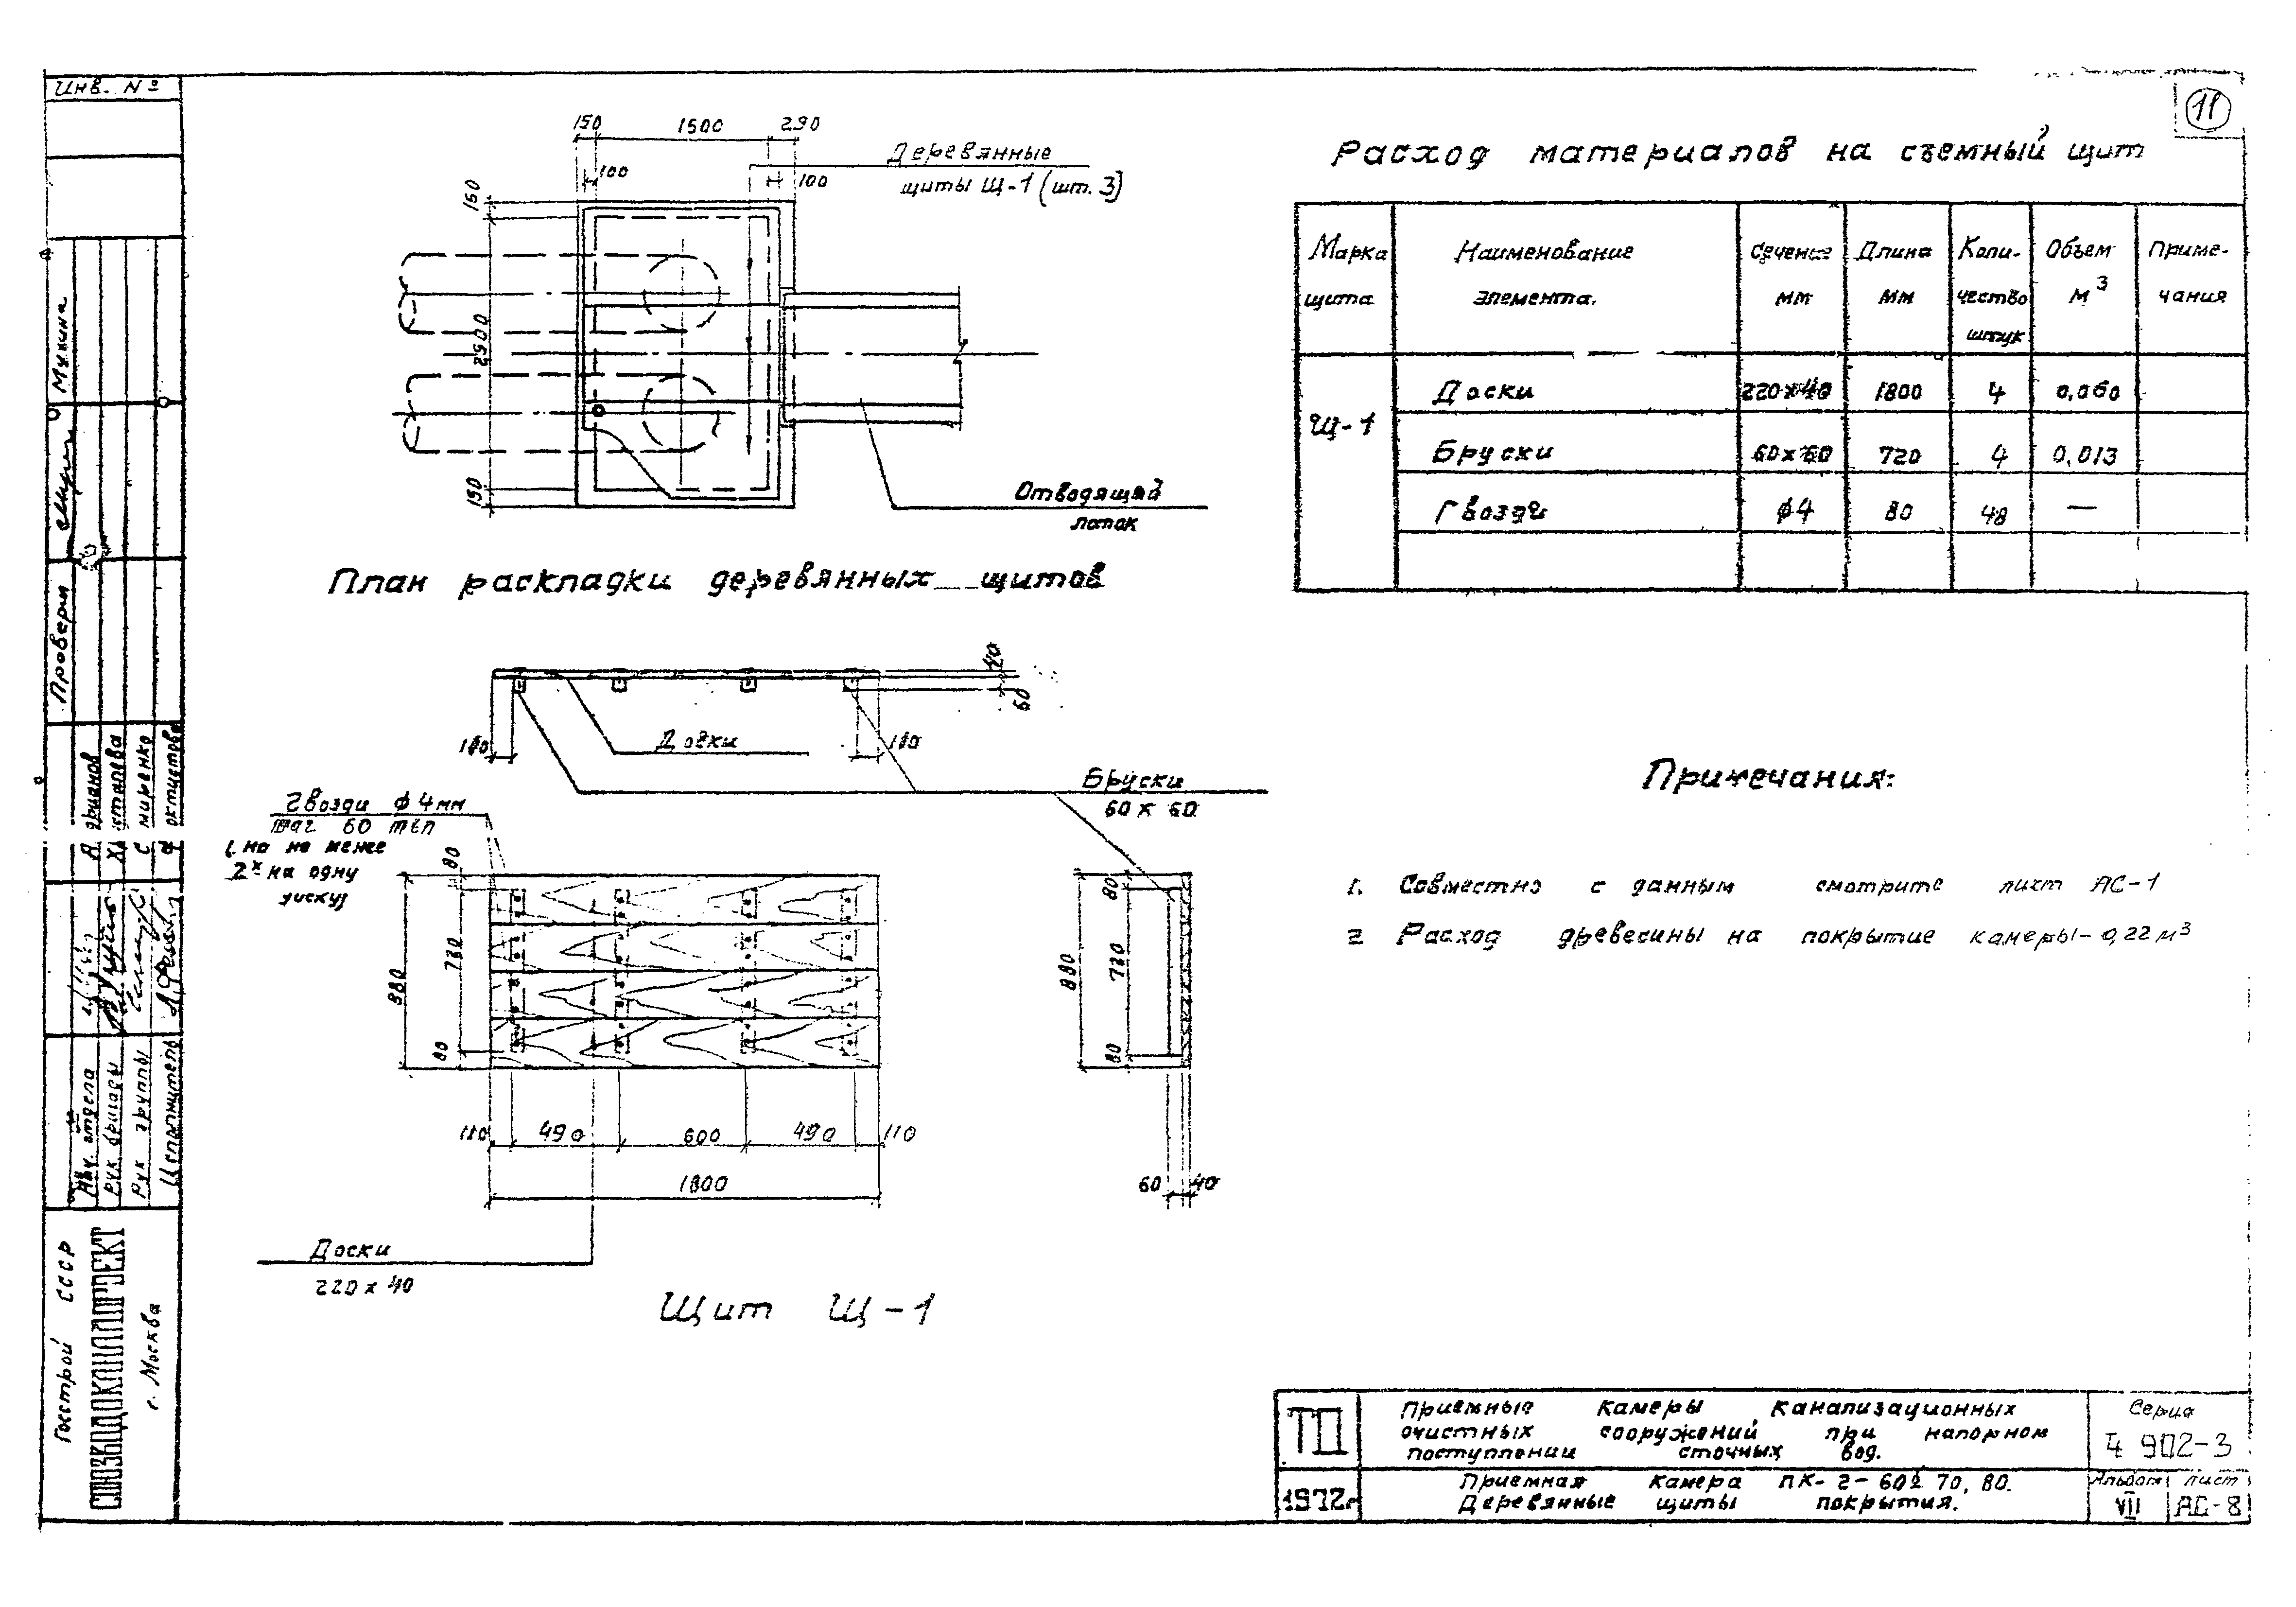 Инв. №
11
150 1500 290
Деревянные
щиты Щ-1 (шт. 3)
100 100
150
2900
150
Отводящий
лоток
План раскладки деревянных щитов
Расход материалов на съемный щит
Марка щита Наименование элемента. Сечение мм Длина мм Количество штук Объем м3 Примечания
Щ-1
Доски 220х40 1800 4 0,060
Бруски 60х60 720 4 0,013
Гвозди ф4 80 48 —
40
60
Доски
Бруски
60 х 60
Гвозди ф 4 мм
но не менее
2х на одну
80
720
880
80
110 490 600 490 110
1800
80
720
880
80
60 40
Доски
220 х 40
Щит Щ-1
Примечания:
1. Совместно с данным смотрите лист АС-1
2 Расход древесины на покрытие камеры - 0,22 м3
Проверил Мухина
Нач. отдела
Рук. бригады
Рук группы
Исполнитель
Госстрой СССР
СОЮЗВОДОКАНАЛПРОЕКТ
г. Москва
ТП
1972г
Приемные камеры канализационных
очистных сооружений при напорном
поступлении сточных вод.
Приемная камера ПК-2-60, 70, 80.
Деревянные щиты покрытия.
Серия
4 902-3
Альбом лист
VII АС-8